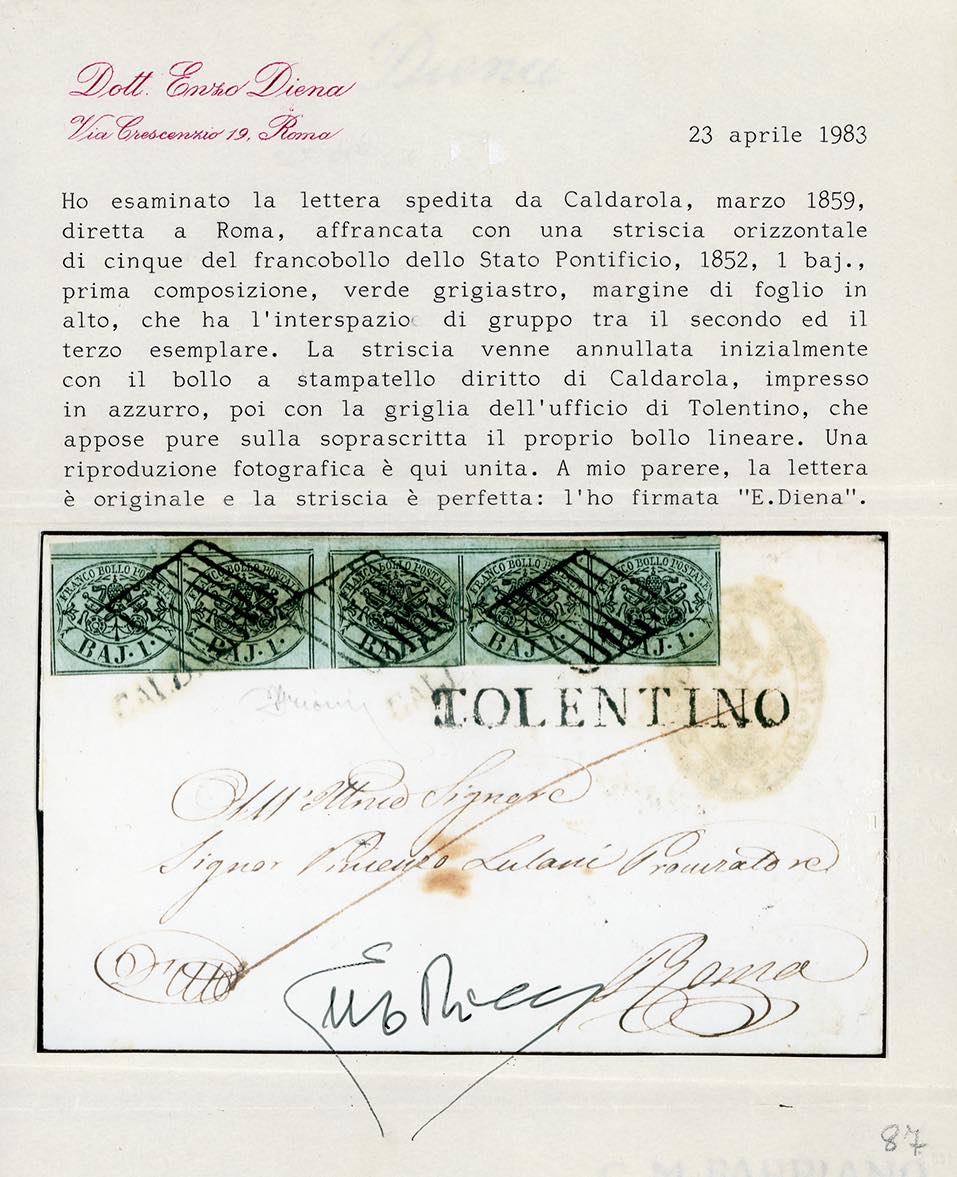 Dott. Enzo Diena
Via Crescenzio 19, Roma
23 aprile 1983
Ho esaminato la lettera spedita da Caldarola, marzo 1859,
diretta a Roma, affrancata con una striscia orizzontale
di cinque del francobollo dello Stato Pontificio, 1852, 1 baj.,
prima composizione, verde grigiastro, margine di foglio in
alto, che ha l'interspazio di gruppo tra il secondo ed il
terzo esemplare. La striscia venne annullata inizialmente
con il bollo a stampatello diritto di Caldarola, impresso
in azzurro, poi con la griglia dell'ufficio di Tolentino, che
appose pure sulla soprascritta il proprio bollo lineare. Una
riproduzione fotografica è qui unita. A mio parere, la lettera
è originale e la striscia è perfetta: l'ho firmata "E.Diena".
FRANCO BOLLO POSTALE FRANCO BOLLO POSTALE FRANCO BOLLO POSTALE FRANCO BOLLO POSTALE FRANCO BOLLO POSTALE
BAJ. 1. BAJ. 1. BAJ. 1. BAJ. 1. BAJ. 1.
TOLENTINO
Signore
Signor Vincenzo Lulani Procuratore
Roma
87